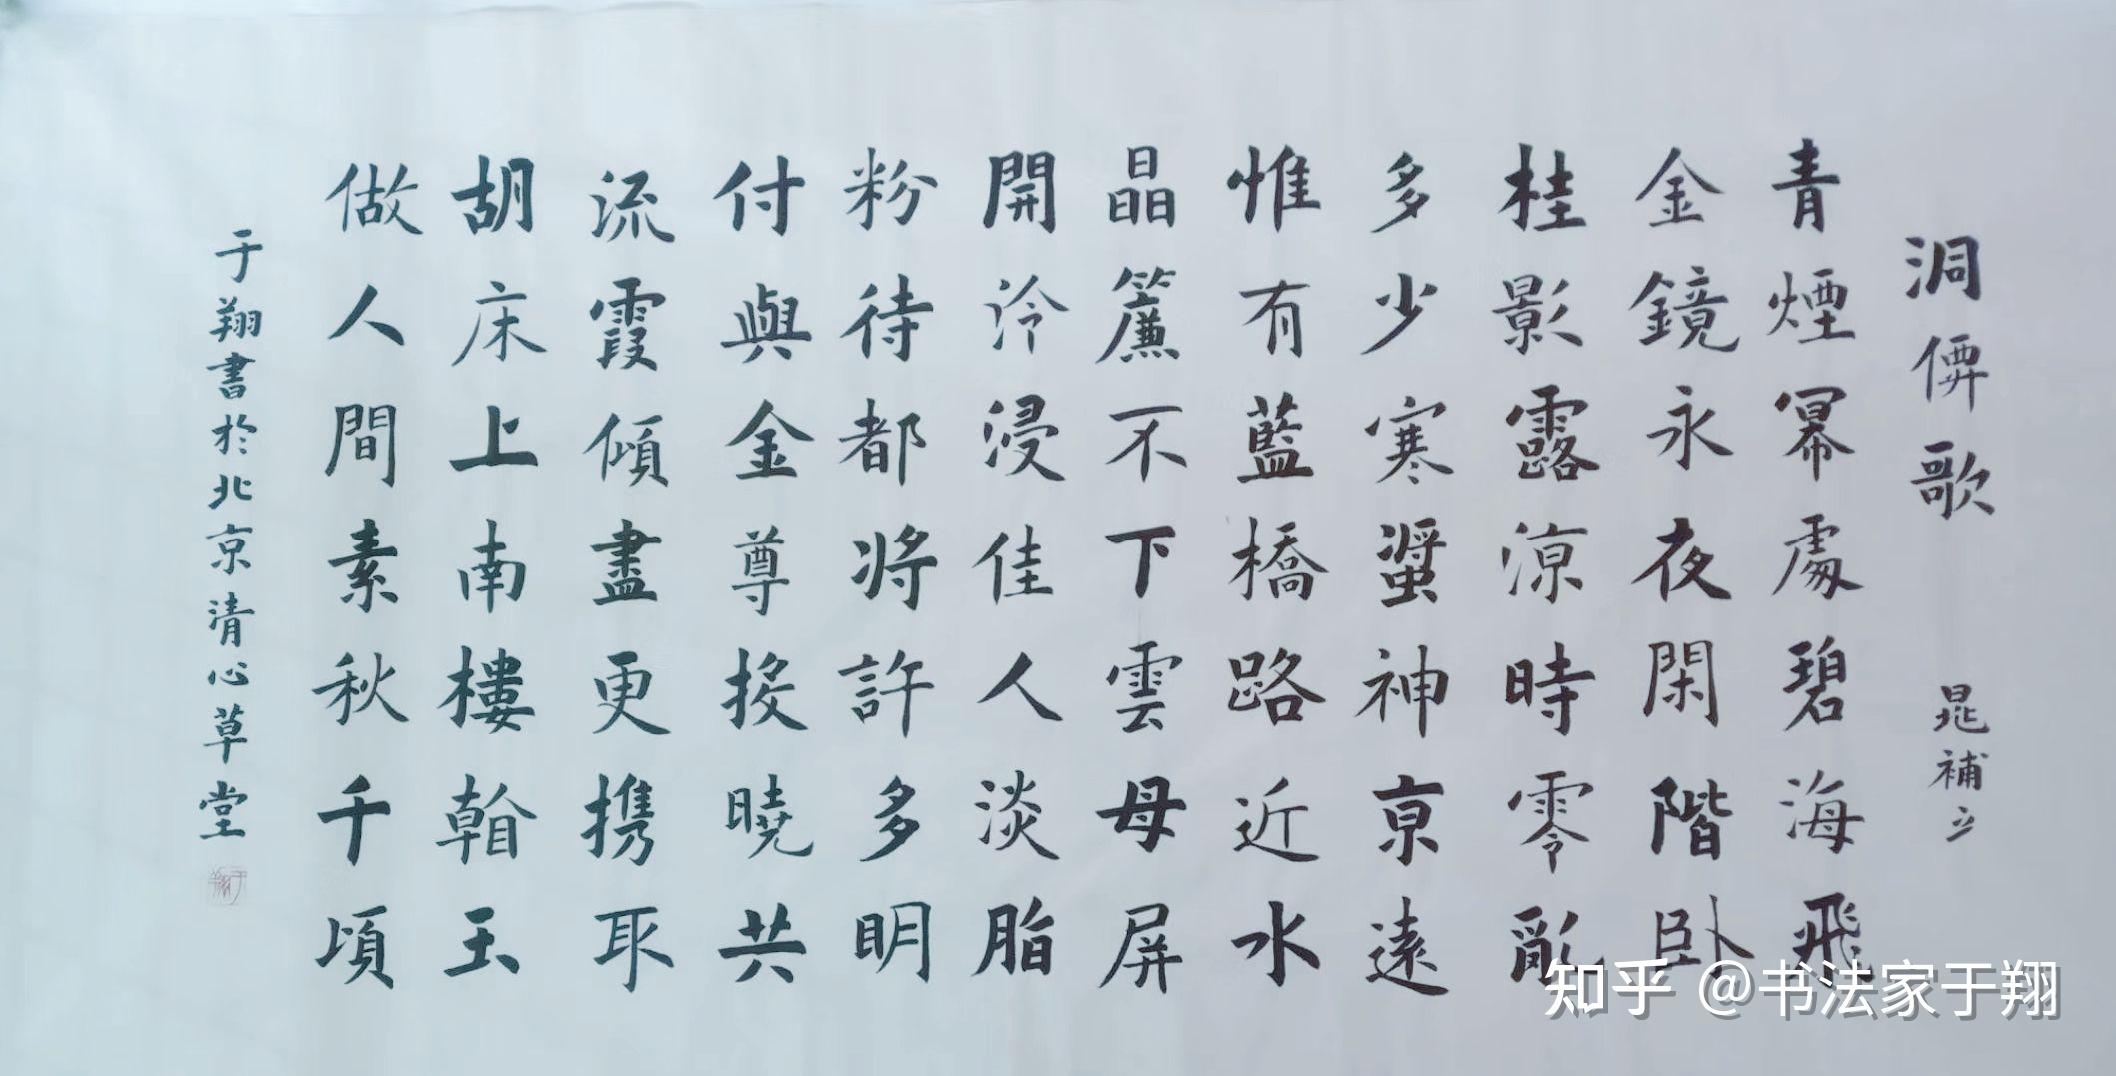 洞僊歌 晁補之
青煙冪處碧海飛
金鏡永夜閑階臥
桂影露涼時零亂
多少寒螿神京遠
惟有藍橋路近水
晶簾不下雲母屏
開泠浸佳人淡脂
粉待都將許多明
付與金尊投曉共
流霞傾盡更携取
胡床上南樓看玉
做人間素秋千頃
于翔書於北京清心草堂
知乎 @书法家于翔